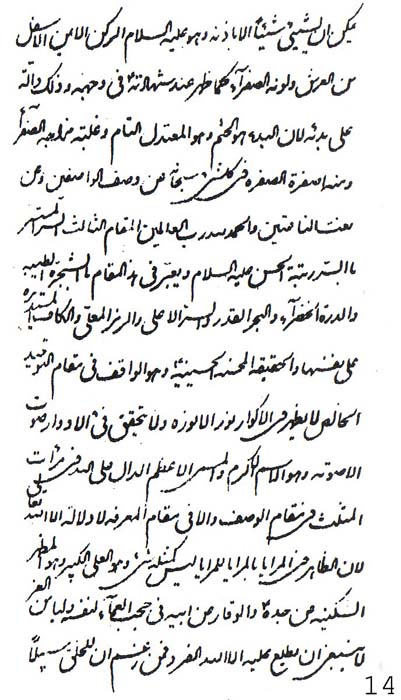 يمكن ان يشيئ شيئاً الا باذنه وهو عليه السلام الركن الايمن الاسفل
من العرش ولونه الصفرآء كما ظهر عند شهادته في وجهه وذلك دالّة
على بدئه لان البدء هو الختم وهو المعتدل التام وغلبته مزاجه الصفرآ
ومنه اصفرة الصفرة في كلشئ سبحانه عن وصف الواصفين وعن
نعت الناعتين والحمد لله رب العالمين المقام الثالث السر المستسر
بالسر رتبة الحسن عليه السلام ويعبّر في هذا المقام بالشجرة الطيبة
والدرة الخضرآء والبحر القدر والسر الاعلى والرمز المعمّى والكاف المستديرة
على نفسها والحقيقة الحسنية وهو الواقف في مقام التوحيد
الخالص لا يظهر في الاكوار نور الا نوره ولا يتحقق في الادوار صوت
الا صوته وهو الاسم الاكرم والمسمى الاعظم الدال على الله في مرآت
المثلث في مقام الوصف والا في مقام المعرفة لا دلالة الا الله تعالى
لان الظاهر في المرايا بالمرايا للمرايا ليس كمثله شئ وهو العلي الكبير وهو المظهر
السكينة من جده والوقار من ابيه في حجب العمآء لنفسه ولباس العز
لا ينبغي ان يطلع عليه الا الله الفرد فمن زعم ان للخلق سبيلاً
14